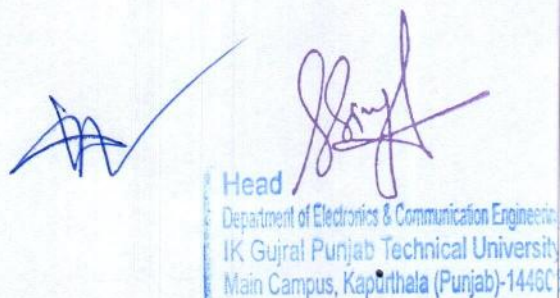 Head
Department of Electronics & Communication Engineerin
IK Gujral Punjab Technical Universit
Main Campus, Kapurthala (Punjab)-14460